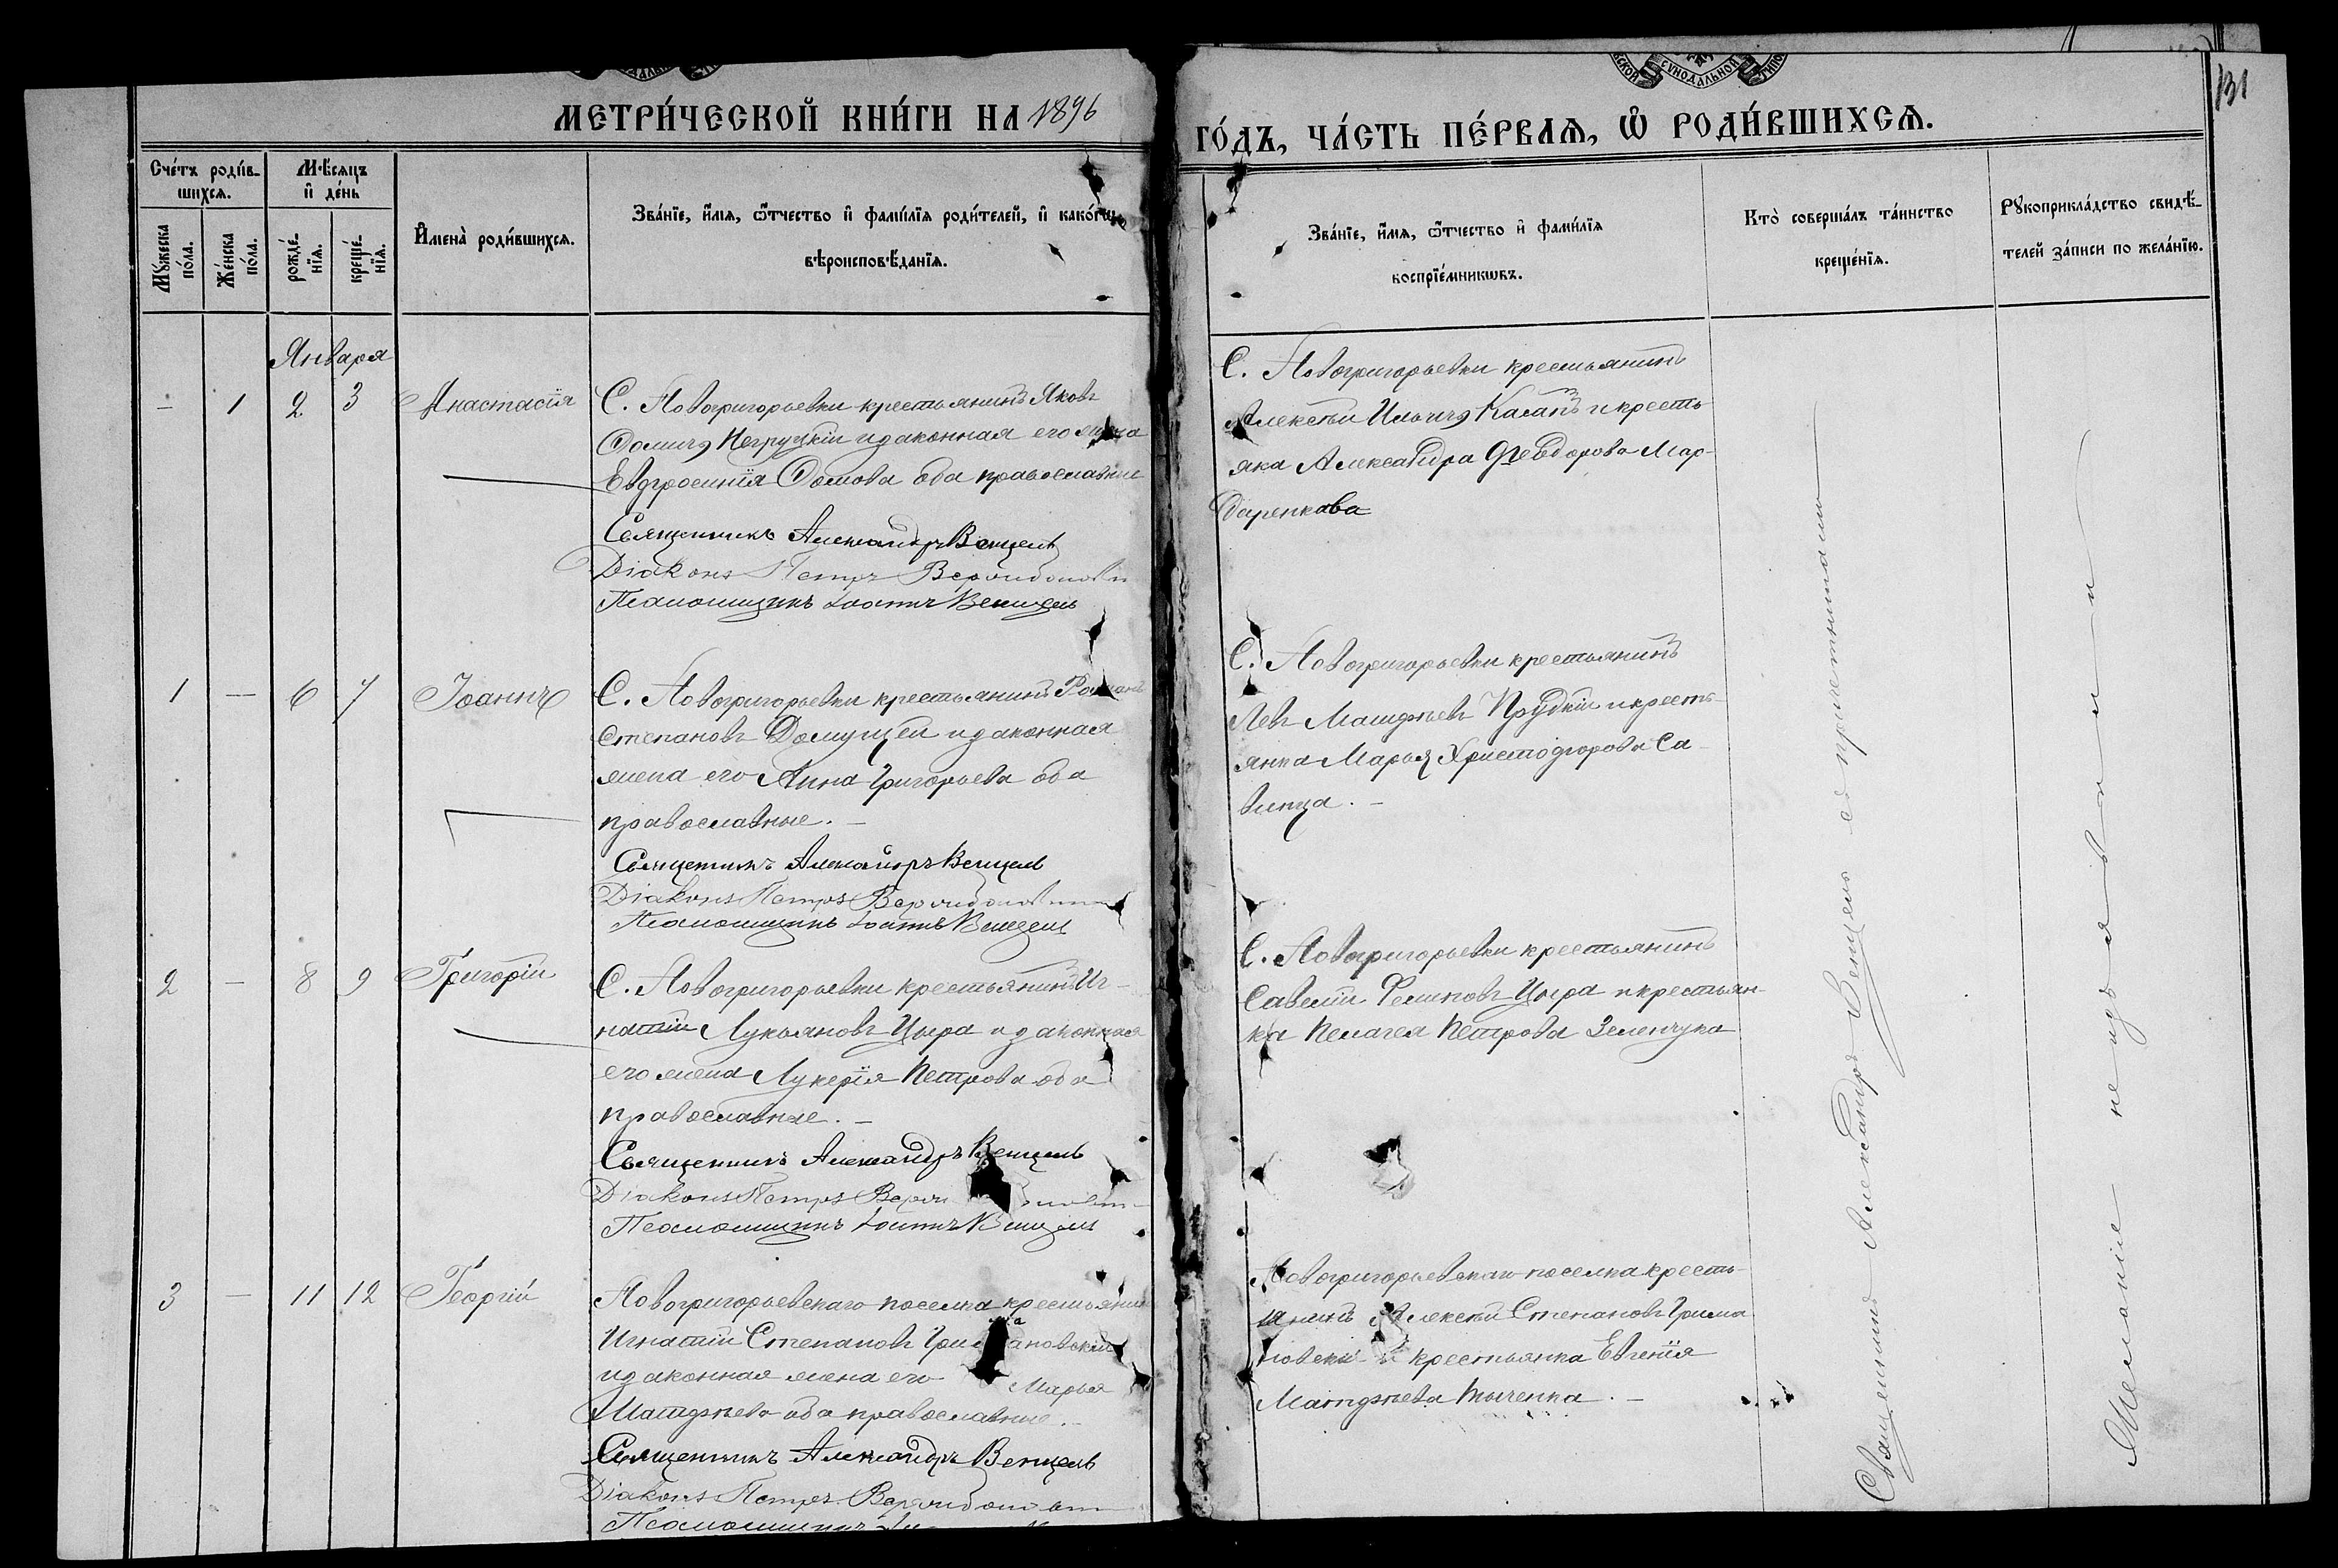 МЕТРИ́ЧЕСКОЙ КНИ́ГИ НА 1896
ГО́ДЪ, ЧА́СТЬ ПЕ́РВАѦ, Ѽ РОДИ́ВШИХСѦ.
131
Сче́тъ роди́в-
шихсѧ.
Мѣ́сѧцъ
и҆ де́нь
Мꙋ́жеска
по́ла.
Же́нска
по́ла.
рожде́-
нїѧ.
креще́-
нїѧ.
И҆мена̀ роди́вшихсѧ.
Зва́нїе, и҆́мѧ, ѻ҆́тчество и҆ фами́лїѧ роди́телей, и҆ како́гѡ
вѣроисповѣ́данїѧ.
Зва́нїе, и҆́мѧ, ѻ҆́тчество и҆ фами́лїѧ
воспрїе́мникѡвъ.
Кто̀ соверша́лъ та́инство
креще́нїѧ.
Рꙋкоприкла́дство свидѣ́-
телей за́писи по жела́нїю.
Января
— 1 2 3 Анастасія
С. Новогригорьевки крестьянинъ Яковъ
Ѳомичъ Негруцкій и законная его жена
Евдросинія Ѳомова оба православные
Священникъ Александръ Венцель
Діаконъ Петръ
Псаломщикъ Іоаннъ Венцель
С. Новогригорьевки крестьянинъ
Алексѣй Ильичъ Касапъ и кресть-
янка Александра Ѳеодорова Мар-
даренкова
1 — 6 7 Іоаннъ
С. Новогригорьевки крестьянинъ Романъ
Степановъ Домущей и законная
жена его Анна Григорьева оба
православные. —
Священникъ Александръ Венцель
Діаконъ Петръ
Псаломщикъ Іоаннъ Венцель
С. Новогригорьевки крестьянинъ
Левъ Матфѣевъ Прудкій и кресть-
янка Марья Христофорова Са-
винца. —
2 — 8 9 Григорій
С. Новогригорьевки крестьянинъ Иг-
натій Лукьяновъ Цыра и законная
его жена Лукерія Петрова оба
православные. —
Священникъ Александръ Венцель
Діаконъ Петръ
Псаломщикъ Іоаннъ Венцель
С. Новогригорьевки крестьянинъ
Савелій Филиповъ Цыра и крестьян-
ка Пелагея Петрова Зеленчука
3 — 11 12 Георгій
Новогригорьевскаго поселка крестьянинъ
Игнатій Степановъ
и законная жена его Марья
Матфѣева оба православные. —
Священникъ Александръ Венцель
Діаконъ Петръ
Псаломщикъ
Новогригорьевскаго поселка кресть-
янинъ Алексѣй Степановъ Грима
новскій и крестьянка Евгенія
Матфѣева Тыченка. —
Священникъ Александръ Венцель съ причетниками
Желаніе не изъявили